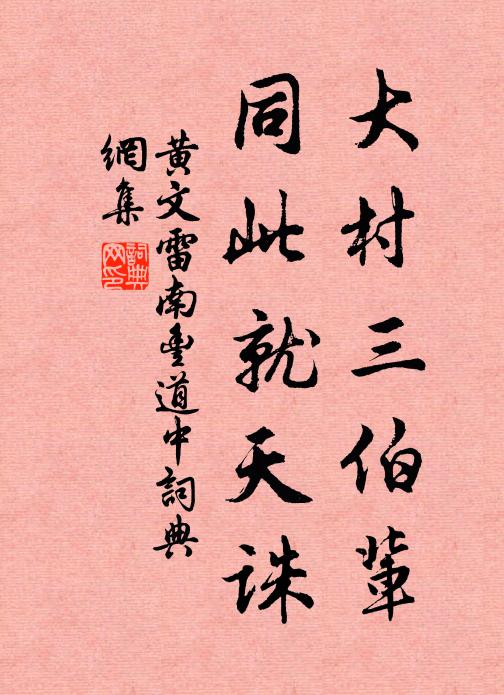 大村三伯輩
同此就天誅
黄文雷南豊道中詞典
網集
詞典
网印